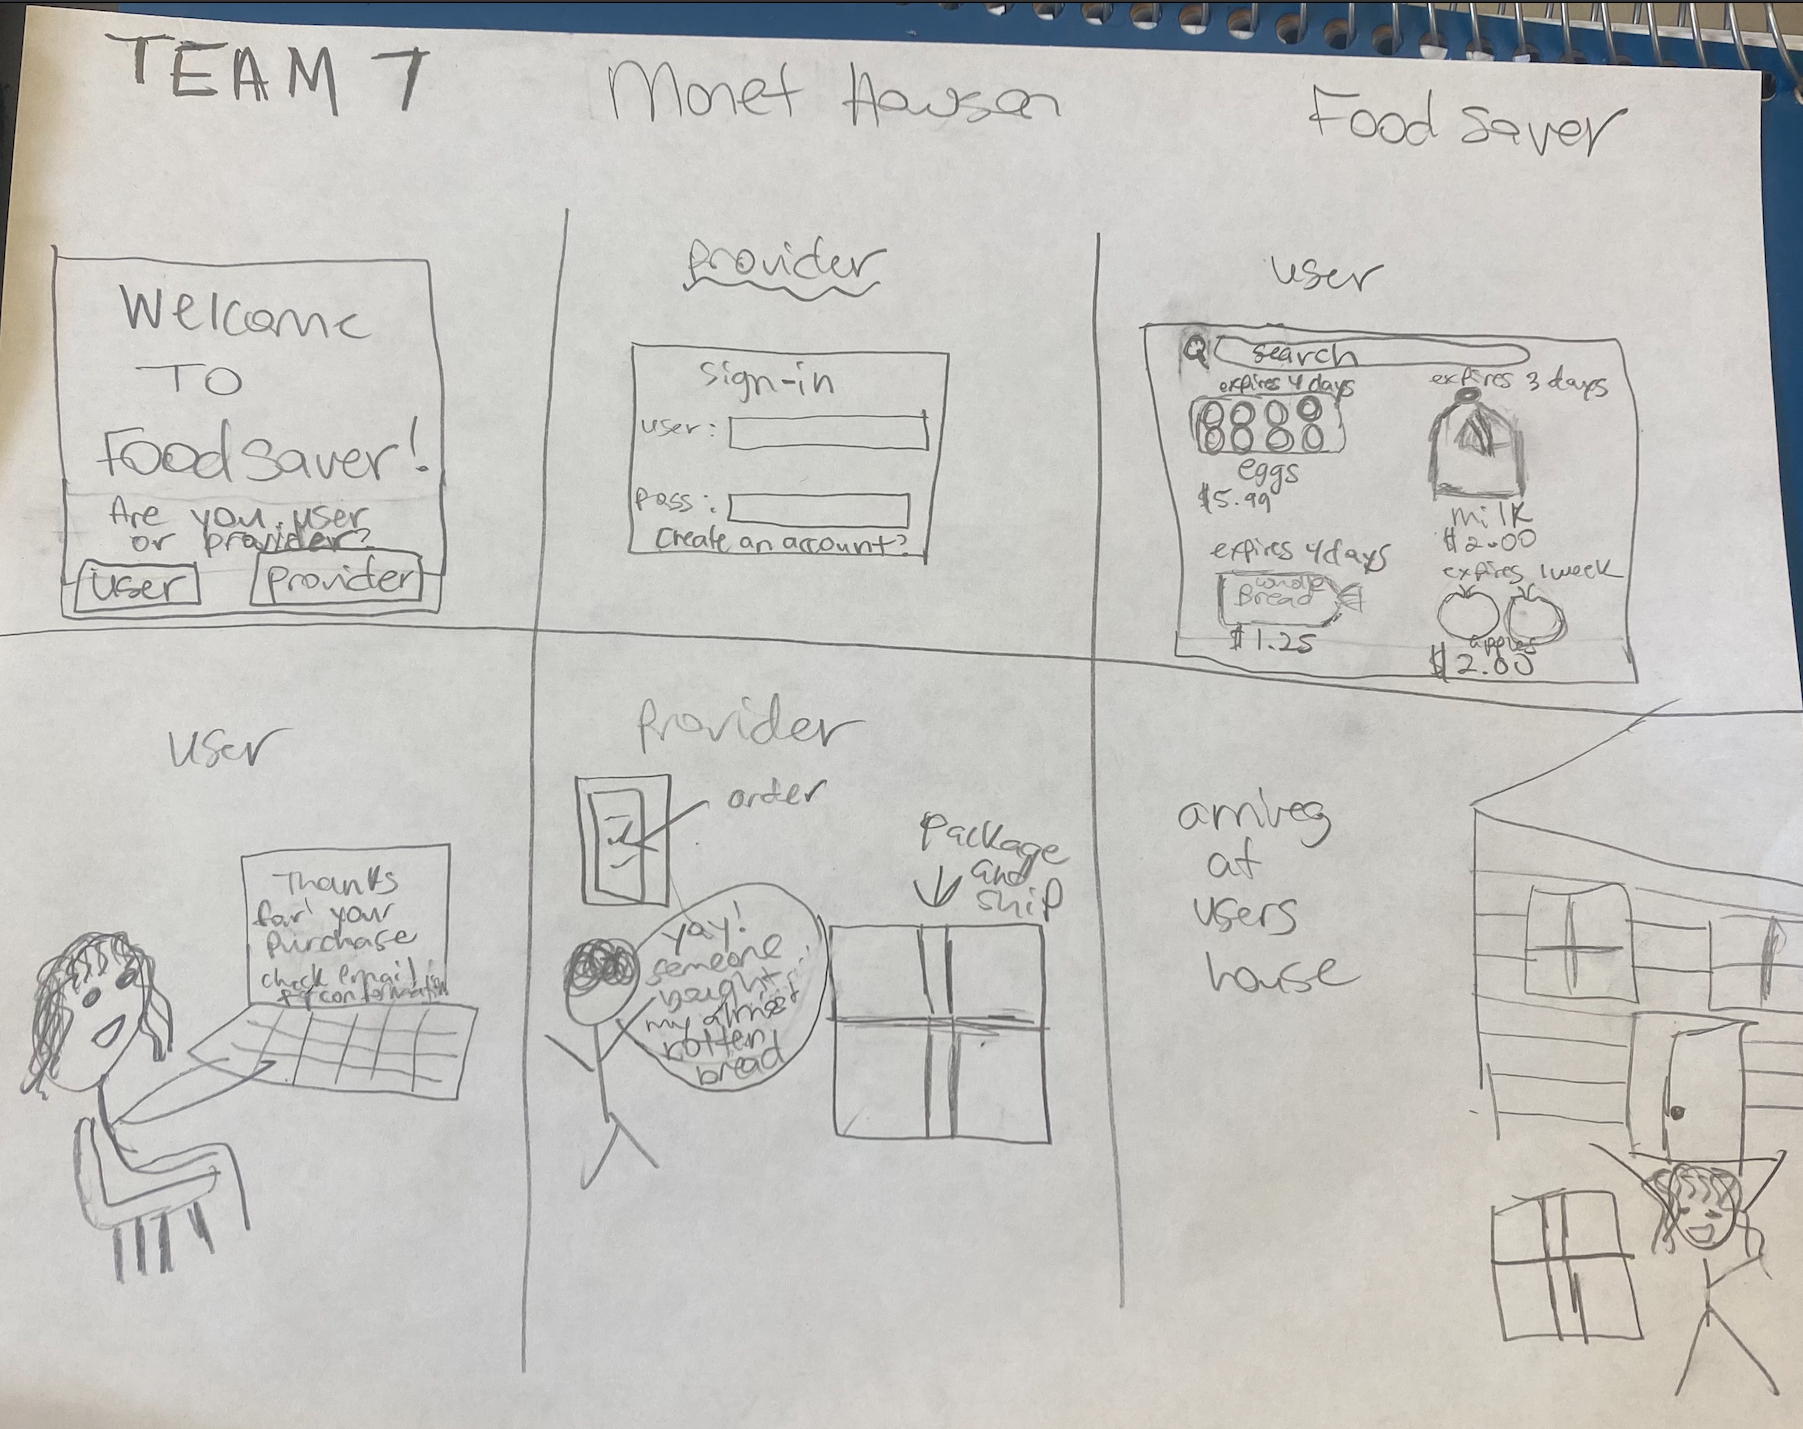 TEAM 7
Monet Hawson
Food Saver
Welcome
To
Foodsaver!
Are you user
or provider?
user
provider
provider
sign-in
user:
pass:
Create an account?
user
search
expires 4 days
eggs
$5.99
expires 3 days
milk
$2.00
expires 4 days
whole
Bread
$1.25
expires 1 week
apples
$2.00
user
Thanks
for your
Purchase
check email
for conformation
Provider
order
yay!
someone
bought
my almost
rotten
bread
Package
and
ship
arrives
at
users
house